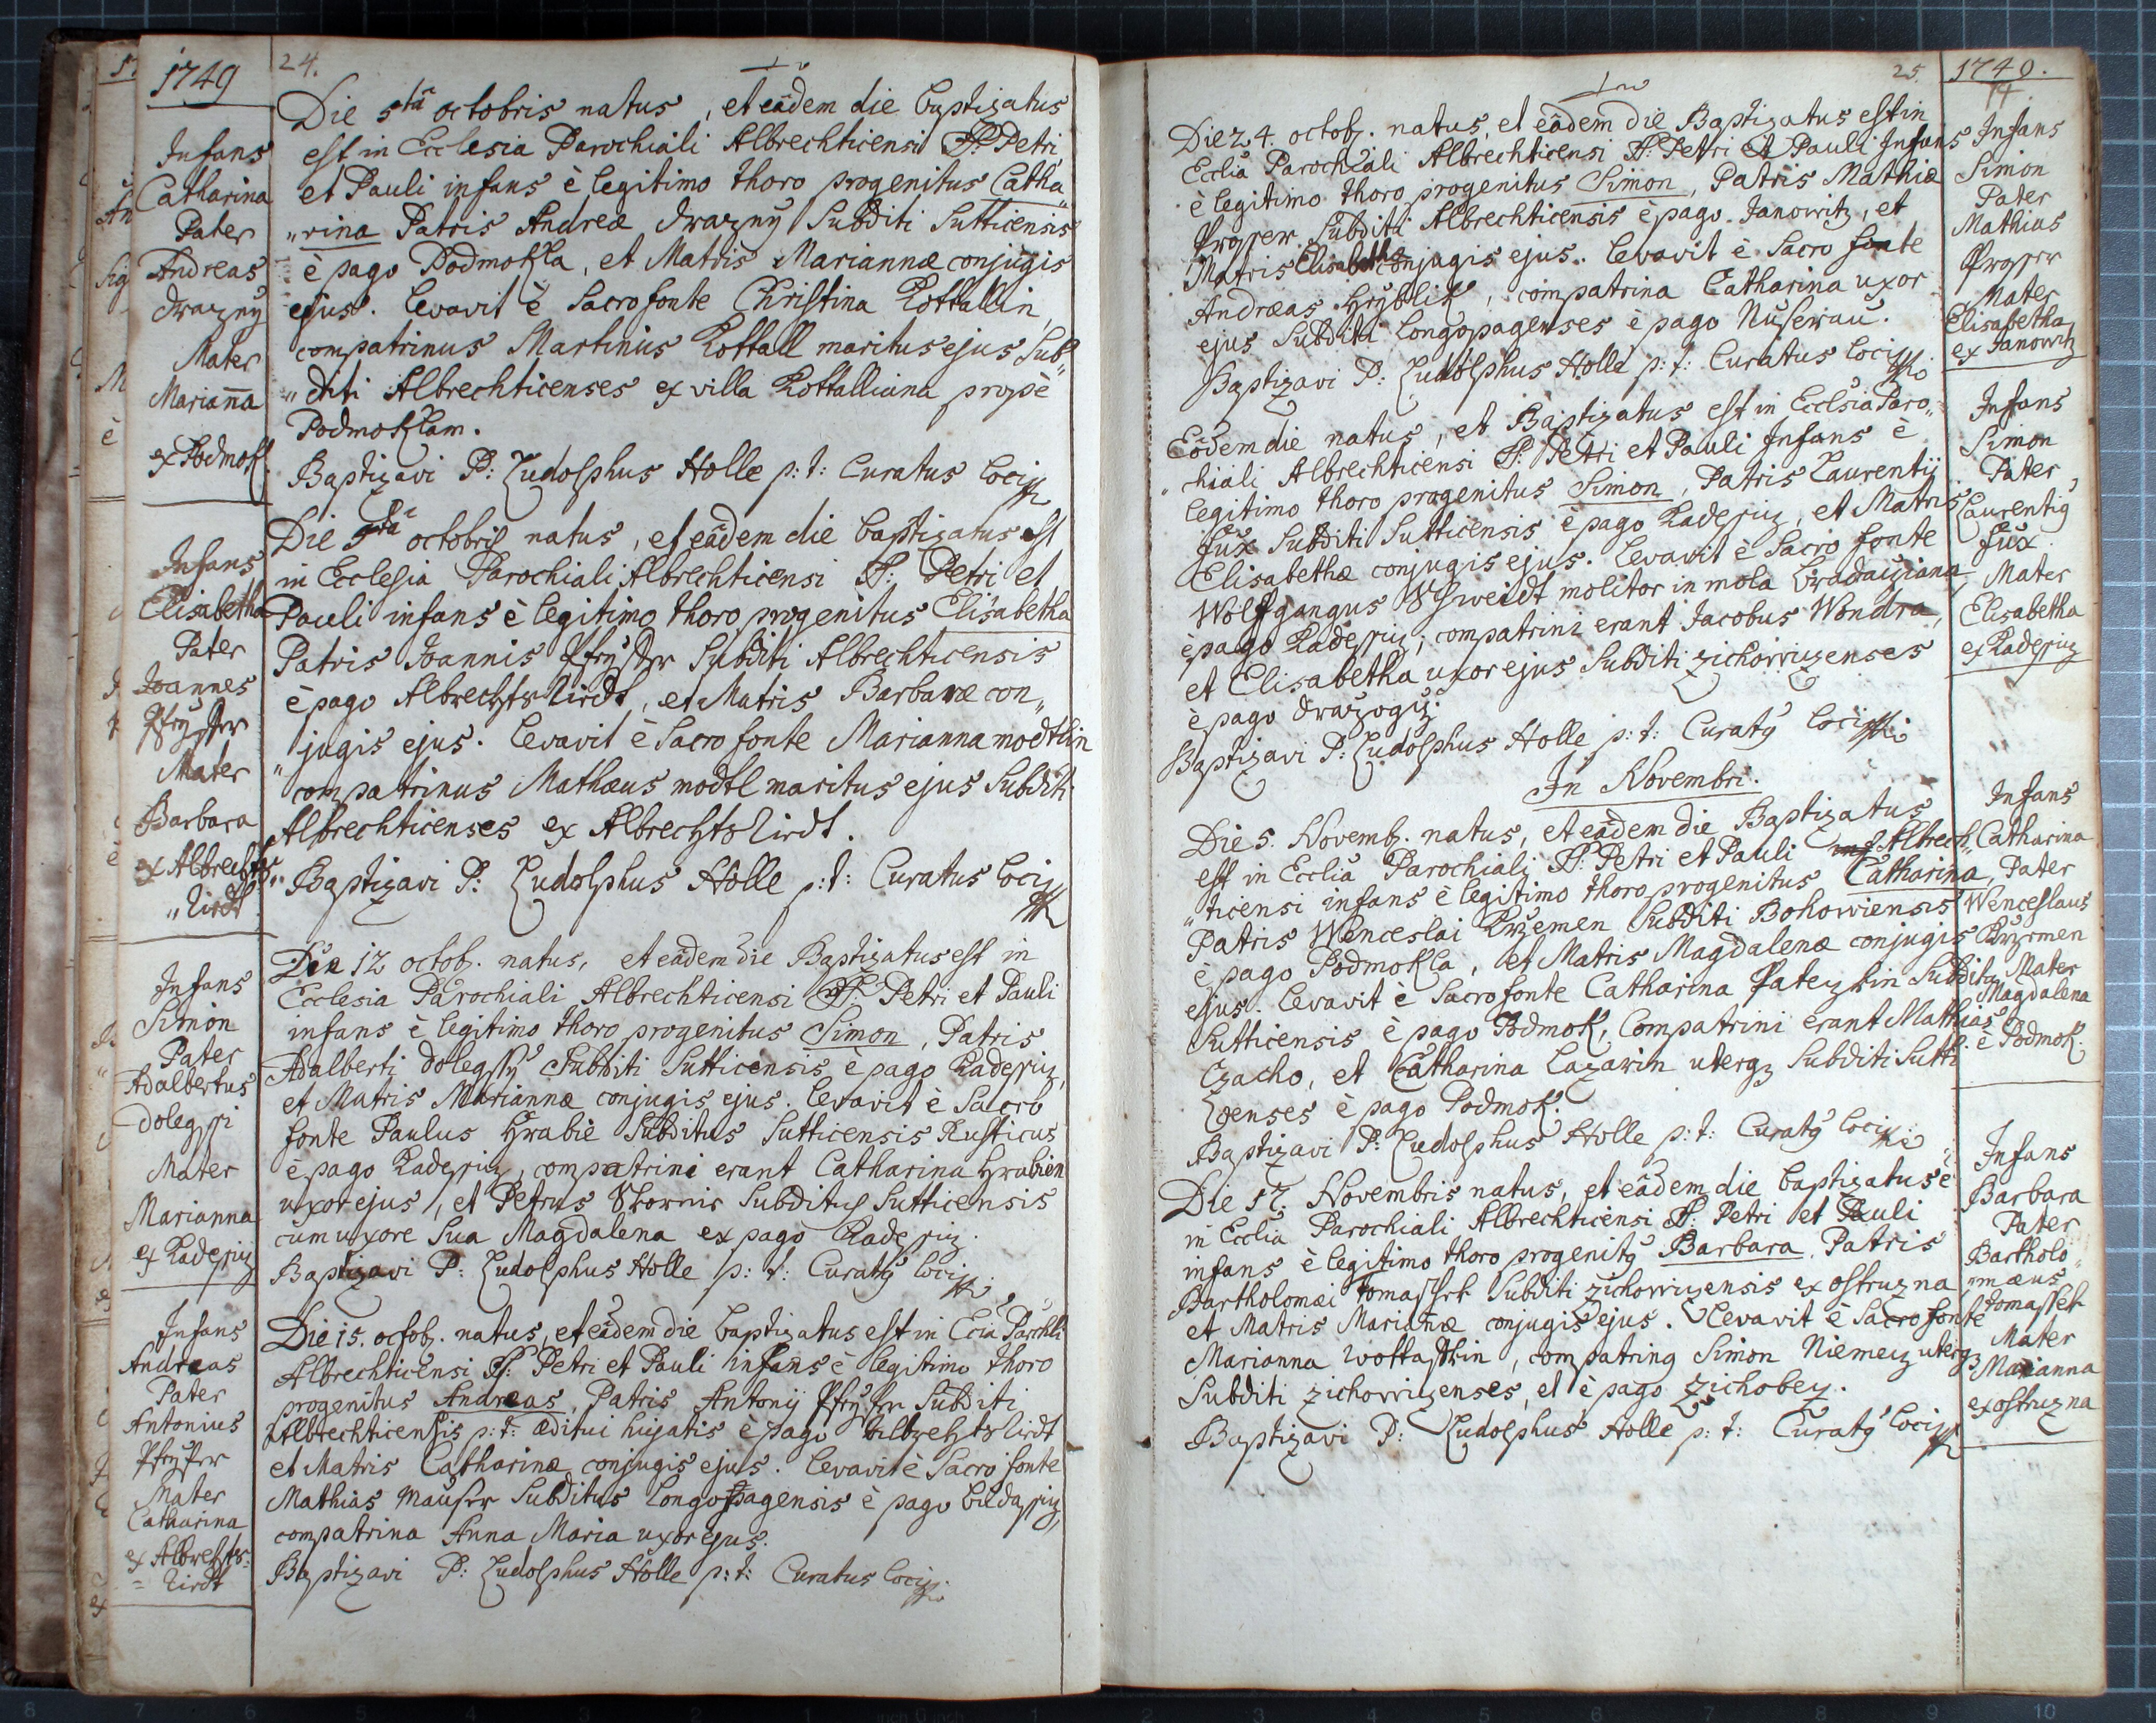 1749
24.
Infans
Catharina
Pater
Andreas
Drazny
Mater
Marianna
ex Podmok.
Die 5ta octobris natus, et eâdem die baptizatus
est in Ecclesia Parochiali Albrechticensi SS: Petri
et Pauli infans è legitimo thoro progenitus Catha„
„rina Patris Andreæ Drazny Subditi Sutticensis
è pago Podmokla, et Matris Mariannæ conjugis
ejus. levavit è Sacro fonte Christina Kottallin,
compatrinus Martinus Kottall maritus ejus Sub„
„diti Albrechticenses ex villa Kottalliana propè
Podmoklam.
Baptizavi P: Ludolphus Holle p: t: Curatus loci
Infans
Elisabetha
Pater
Joannes
Mater
Barbara
ex Albrechts
„riedt
Die octobris natus, et eâdem die baptizatus est
in Ecclesia Parochiali Albrechticensi SS: Petri et
Pauli infans è legitimo thoro progenitus Elisabetha
Patris Joannis Subditi Albrechticensis
è pago Albrechtsriedt, et Matris Barbaræ con„
„jugis ejus. levavit è Sacro fonte Marianna modtlin
compatrinus Mathæus modtl maritus ejus Subditi
Albrechticenses ex Albrechtsriedt.
Baptizavi P: Ludolphus Holle p: t: Curatus loci
Infans
Simon
Pater
Adalbertus
Mater
Marianna
ex Radessiz
Die 12 octob. natus, et eâdem die Baptizatus est in
Ecclesia Parochiali Albrechticensi SS: Petri et Pauli
infans è legitimo thoro progenitus Simon, Patris
Adalberti Subditi Sutticensis è pago Radessiz,
et Matris Mariannæ conjugis ejus. levavit è Sacro
fonte Paulus Hrabie Subditus Sutticensis Rusticus
è pago Radessiz, compatrini erant Catharina Hrabien
uxor ejus, et Petrus Subditus Sutticensis
cum uxore Sua Magdalena ex pago Radessiz.
Baptizavi P: Ludolphus Holle p: t: Curatus loci
Infans
Andreas
Pater
Antonius
Mater
Catharina
ex Albrechts=
=riedt
Die 15. octob. natus, et eâdem die baptizatus est in Ecia Parchli
Albrechticensi SS: Petri et Pauli infans è legitimo thoro
progenitus Andreas, Patris Antonij Subditi
Albrechticensis p: t: æditui hujatis è pago Albrechtsriedt
et Matris Catharinæ conjugis ejus. levavit è Sacro fonte
Mathias Mauser Subditus longopagensis è pago
compatrina Anna Maria uxor ejus.
Baptizavi P: Ludolphus Holle p: t: Curatus loci
25.
1749.
Die 24. octob. natus, et eâdem die Baptizatus est in
Ecclia Parochiali Albrechticensi SS: Petri et Pauli Infans
è legitimo thoro progenitus Simon, Patris Mathiæ
Prosser Subditi Albrechticensis è pago Janowitz, et
Matris Elisabetha conjugis ejus. levavit è Sacro fonte
Andræas Hryblik, compatrina Catharina uxor
ejus Subditi longopagenses è pago Nuserau.
Baptizavi P: Ludolphus Holle p: t: Curatus loci
Infans
Simon
Pater
Mathias
Prosser
Mater
Elisabetha
ex Janowitz
Eôdem die natus, et Baptizatus est in Ecclsia Paro„
„chiali Albrechticensi SS: Petri et Pauli Infans è
legitimo thoro progenitus Simon, Patris Laurentij
fux Subditi Sutticensis è pago Radessiz, et Matris
Elisabethæ conjugis ejus. levavit è Sacro fonte
Wolfgangus molitor in mola
è pago Radessiz; compatrini erant Jacobus Wondra,
et Elisabetha uxor ejus Subditi zichowizenses
è pago
Baptizavi P: Ludolphus Holle p: t: Curatus loci
Infans
Simon
Pater
Laurentius
fux
Mater
Elisabetha
ex Radessiz
In Novembri.
Die 5. Novemb. natus, et eâdem die Baptizatus
est in Ecclia Parochiali SS: Petri et Pauli Albrech„
„ticensi infans è legitimo thoro progenitus Catharina,
Patris Wenceslai Krzemen Subditi Bohowiensis
è pago Podmokla, et Matris Magdalenæ conjugis
ejus. levavit è Sacro fonte Catharina Subdita
Sutticensis è pago Podmok, Compatrini erant Mathias
Czacho, et Catharina Lazarin Subditi Sutti
zenses è pago Podmok.
Baptizavi P: Ludolphus Holle p: t: Curatus loci
Infans
Catharina
Pater
Wenceslaus
Krzemen
Mater
Magdalena
è Podmok.
Die 17. Novembris natus, et eâdem die baptizatus è
in Ecclia Parochiali Albrechticensi SS: Petri et Pauli
infans è legitimo thoro progenitus Barbara, Patris
Bartholomæi Tomassek Subditi zichowizensis ex ostruzna,
et Matris Mariannæ conjugis ejus. levavit è Sacro fonte
Marianna, compatrinus Simon Niemez
Subditi zichowizenses, et è pago Zichobez.
Baptizavi P: Ludolphus Holle p: t: Curatus loci
Infans
Barbara
Pater
Bartholo„
„mæus
Tomassek
Mater
Marianna
ex ostruzna